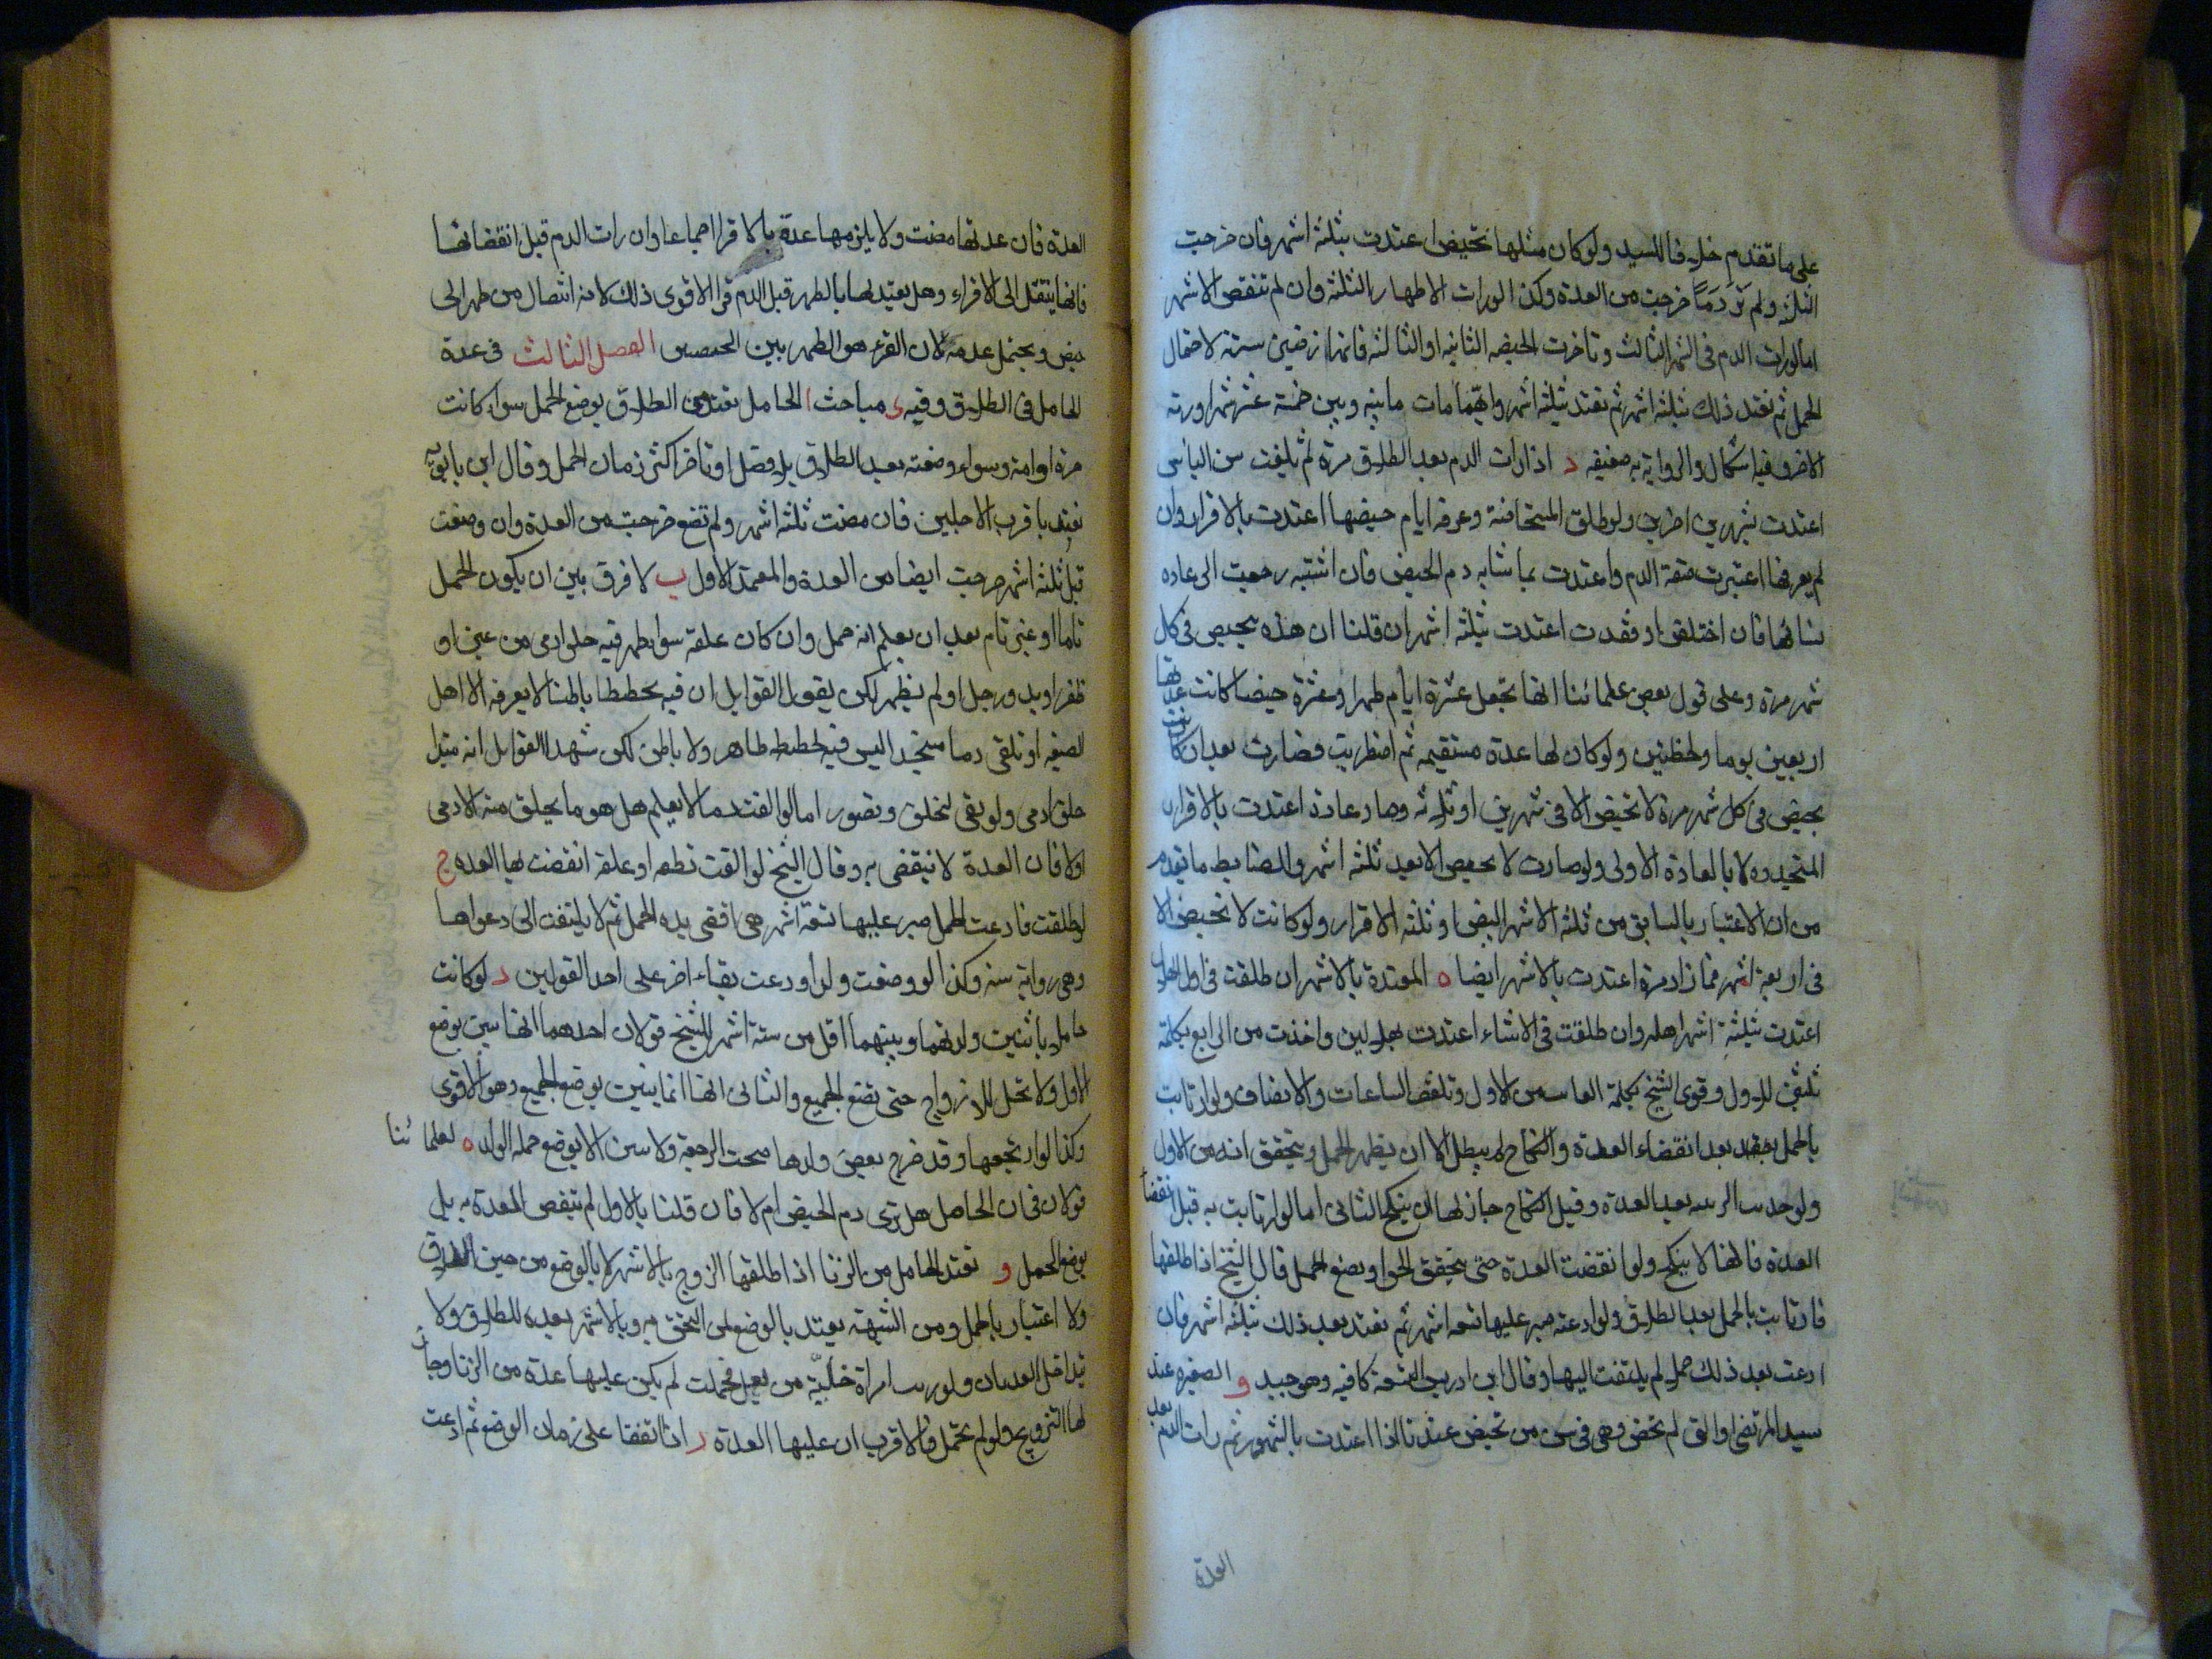 على ما تقدم خلافا للسيد ولو كان مثلها تحيض اعتدت بثلثة اشهر فان خرجت
الثلثة ولم تر دما خرجت من العدة وكذا لو رات الاطهار الثلثة وان لم تنقض الاشهر
اما لو رات الدم فى الشهر الثالث وتاخرت الحيضه الثانيه او الثالثه فانها تربص سنة لاحتمال
الحمل ثم تعتد بعد ذلك بثلثة اشهر ثم تعتد بثلثة اشهر وايهما مات ما بينه وبين خمسة عشر شهرا ورثه
الاخر وفيه اشكال والرواية به ضعيفه د اذا رات الدم بعد الطلاق مرة ثم بلغت سن الياس
اعتدت بشهرين اخرين ولو طلق المستحاضة وعرفه ايام حيضها اعتدت بالاقراء وان
لم يعرفها اعتبرت صفة الدم واعتدت بما شابه دم الحيض فان اشتبه رجعت الى عاده
نسائها فان اختلفن او فقدت اعتدت بثلثه اشهر ان قلنا ان هذه تحيض فى كل
شهر مرة وعلى قول بعض علمائنا انها تجعل عشرة ايام طهرا وعشرة حيضا كانت عدتها
اربعين يوما ولحظتين ولو كان لها عدة مستقيمه ثم اضطربت فصارت بعد ان كانت
تحيض فى كل شهر مرة لا تحيض الا فى شهرين او ثلاثه وصار عادة اعتدت بالاقراء
المتجدده لا بالعادة الاولى ولو صارت لا تحيض الا بعد ثلثه اشهر والضابط ما تقدم
من ان الاعتبار بالسابق من ثلثه الاشهر البيض او ثلثه الاقراء ولو كانت لا تحيض الا
فى اربعة اشهر فما زاد مرة اعتدت بالاشهر ايضا ه المعتدة بالاشهر ان طلقت فى اول الهلال
اعتدت بثلثة اشهر اهله وان طلقت فى الاثناء اعتدت بهلالين واخذت من الرابع تكلة
ثلثين للاول وقوى الشيخ تكلة الفاىت من الاول وتلفق الساعات والانصاف ولو ارتابت
بالحمل بعد انقضاء العدة والنكاح لم يبطل الا ان يظهر الحمل ويتحقق انه من الاول
ولو حدثت الريبه بعد العدة وقبل النكاح جاز لها ان ينكح الثانى اما لو ارتابت به قبل انقضاء
العدة فانها لا ينكح ولو انقضت العدة حتى يتحقق الخلو او تضع الحمل قال الشيخ اذا طلقها
فارتابت بالحمل بعد الطلاق ولو ادعته صبر عليها تسعه اشهر ثم تعتد بعد ذلك بثلثه اشهر فان
ادعت بعد ذلك حملا لم يلتفت اليها وقال ابن ادريس التسعة كافيه وهو جيد و الصغيره عند
سيد المرتضى او التى لم تحض وهى فى سن من تحيض عندنا اذا اعتدت بالشهور ثم رات الدم بعد
العدة
العدة فان عدتها مضت ولا يلزمها عدة بالاقراء اجماعا وان رات الدم قبل انقضائها
فانها ينتقل الى الاقراء وهل يعتد لها بالطهر قبل الدم قرءا الاقوى ذلك لانه انتقال من طهر الى
حيض ويحتمل عدمه لان القرء هو الطهر بين الحيضين الفصل الثالث فى عدة
الحامل فى الطلاق وفيه ى مباحث ا الحامل تعتد من الطلاق بوضع الحمل سواء كانت
حرة او امة وسواء وضعته بعد الطلاق بلا فصل او تاخر اكثر زمان الحمل وقال ابن بابويه
تعتد باقرب الاجلين فان مضت ثلثه اشهر ولم تضع خرجت من العدة وان وضعت
قبل ثلثه اشهر خرجت ايضا من العدة والمعتمد الاول ب لا فرق بين ان يكون الحمل
تاما او غير تام بعد ان يعلم انه حمل وان كان علقه سوا ظهر فيه خلق ادمى من عين او
ظفر او يد ورجل او لم يظهر لكن يقول القوابل ان فيه تخطيطا باطنا لا يعرفه الا اهل
الصنعه او تلقى دما متجسدا ليس فيه تخطيط ظاهر ولا باطن لكن شهد القوابل انه مبدا
خلق ادمى ولو بقى لتخلق وتصور اما لو القت دما لا يعلم هل هو ما يخلق منه الادمى
او لا فان العدة لا تنقضى به وقال الشيخ لو القت نطفه او علقه انقضت بها العده ج
لو طلقت فادعت الحمل صبر عليها تسعة اشهر هى اقصى مدة الحمل ثم لا يلتفت الى دعواها
وهى رواية سنه وكذا لو وضعت ولدا وادعت بقاء اخر على احد القولين د لو كانت
حاملا باثنين ولدتهما وبينهما اقل من ستة اشهر للشيخ قولان احدهما انها تبين بوضع
الاول ولا تحل للازواج حتى تضع الجميع والثانى انها انما تبين بوضع الجميع وهو الاقوى
وكذا لو ارتجعها وقد خرج بعض ولدها صحت الرجعة ولا تبين الا بوضع جملة الولد ه لعلمائنا
قولان فى ان الحامل هل ترى دم الحيض ام لا فان قلنا بالاول لم تنقض العدة به بل
بوضع الحمل و تعتد الحامل من الزنا اذا طلقها الزوج بالاشهر لا بالوضع من حين الطلاق
ولا اعتبار بالحمل ومن الشبهة يعتد بالوضع لمن التحق به وبالاشهر بعده للطلاق ولا
تداخل العدتان ولو زنت امراة خالية من بعل فحملت لم يكن عليها عدة من الزنا وجاز
لها التزويج ولو لم تحمل فالاقرب ان عليها العدة ز اذا اتفقا على زمان الوضع ثم ادعت